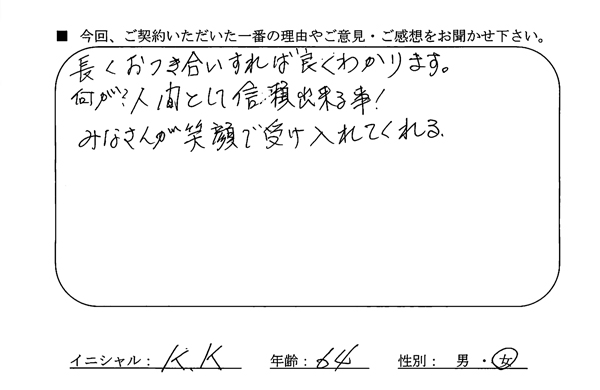 ■ 今回、ご契約いただいた一番の理由やご意見・ご感想をお聞かせ下さい。
長くおつき合いすれば良くわかります。
何が?人間として信頼出来る事!
みなさんが笑顔で受け入れてくれる.
イニシャル: K.K 年齢: 64 性別: 男・女